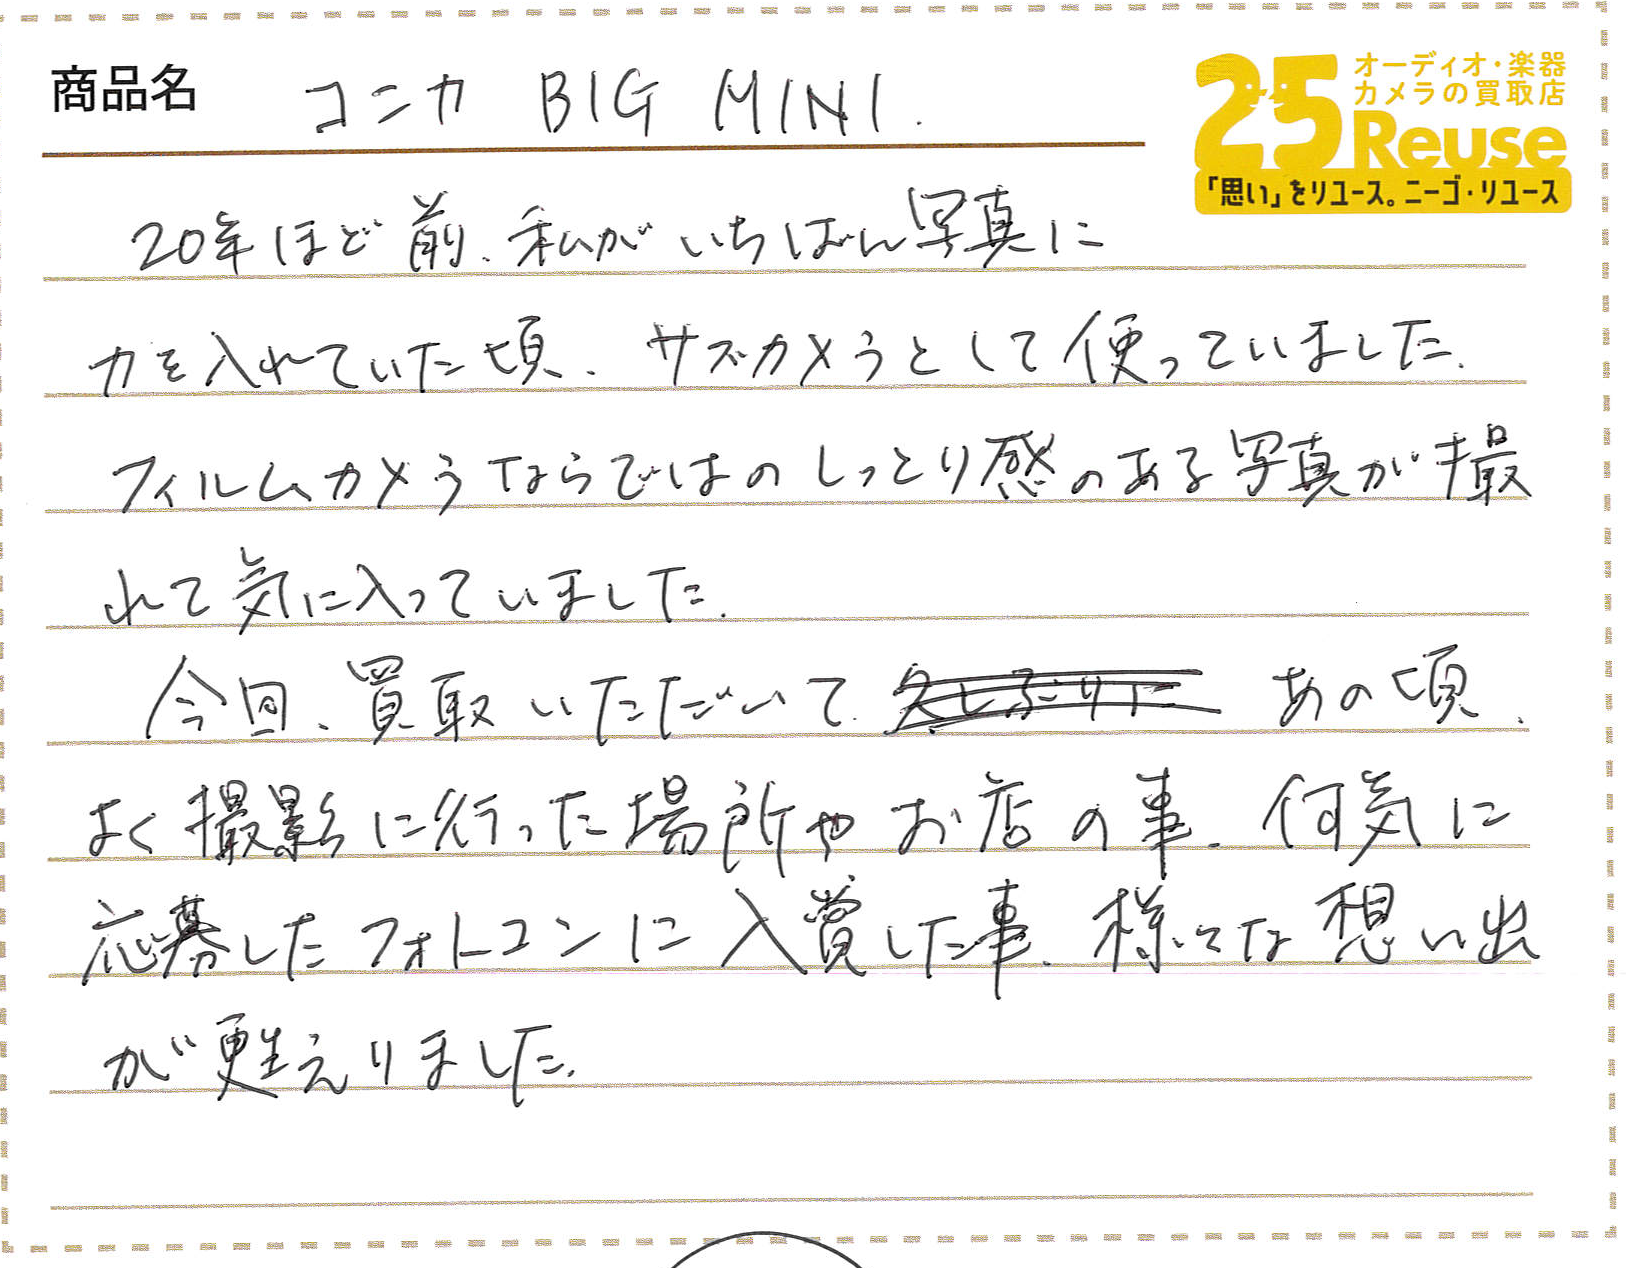 商品名 コニカ BIG MINI.
オーディオ・楽器
カメラの買取店
25 Reuse
「思い」をリユース。ニーゴ・リユース
20年ほど前、私がいちばん写真に
力を入れていた頃、サブカメラとして使っていました。
フィルムカメラならではのしっとり感のある写真が撮
れて気に入っていました。
今回、買取いただいて、久しぶりに あの頃、
よく撮影に行った場所やお店の事、何気に
応募したフォトコンに入賞した事、様々な想い出
が甦えりました。